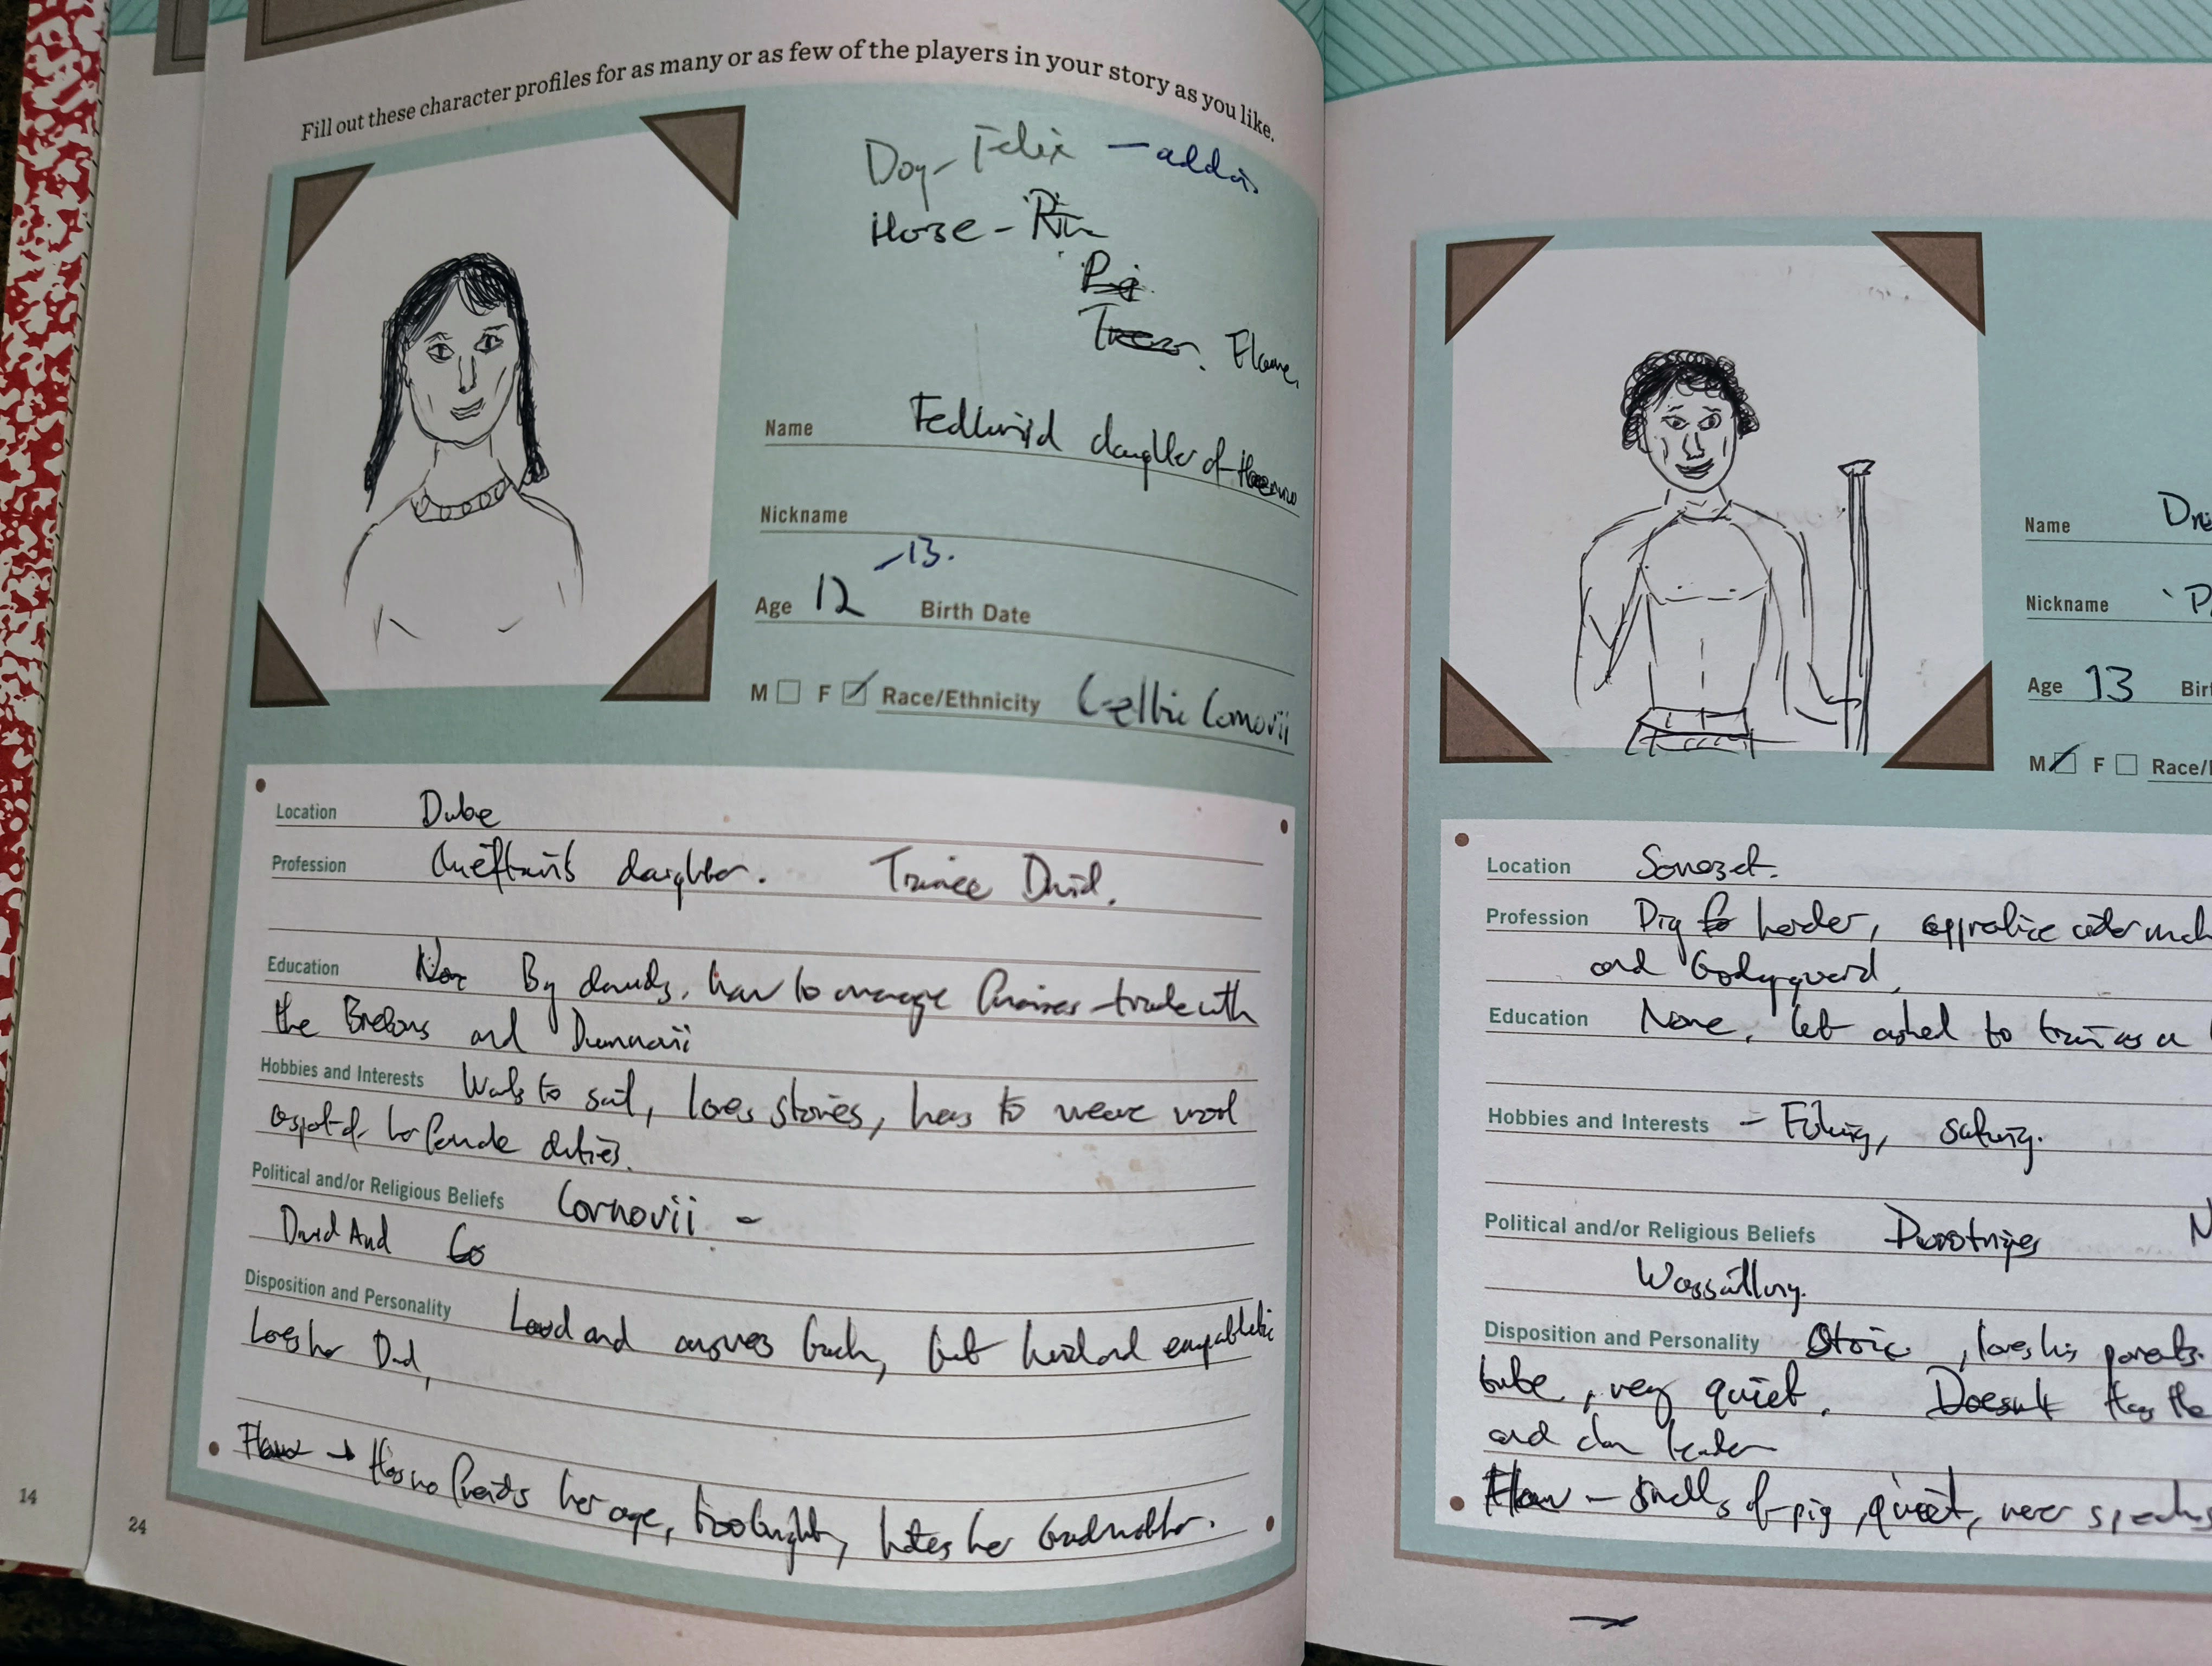 Fill out these character profiles for as many or as few of the players in your story as you like.
Dog - Felix -
Horse -
Name daughter of
Nickname
13.
Age 12 Birth Date
M F Race/Ethnicity Celtic Cornovii
Location
Profession Chieftain's daughter. Trainee Druid.
Education By druids, how to manage trade with
the and
Hobbies and Interests Wants to sail, loves stories, has to weave wool
as part of her female duties.
Political and/or Religious Beliefs Cornovii -
Druid And
Disposition and Personality Loud and answers back, but kind and empathetic
Loves her Dad,
Flaw → Has no friends her age, too bright, hates her Grandmother.
14
24
Name
Nickname
Age 13
M F Race/
Location Somerset.
Profession Pig herder,
and Bodyguard,
Education None, but asked to train as a
Hobbies and Interests - Fishing, sailing.
Political and/or Religious Beliefs Durotriges
Wassailing.
Disposition and Personality Stoic, loves his parents.
tribe, very quiet. Doesn't
and clan leader
Flaw - Smells of pig, quiet, never speaks